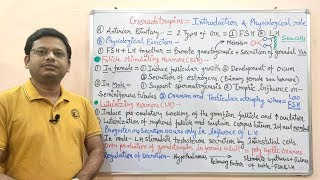 Gonadotropins = Introduction & Physiological role
Anterior Pituitary = 2 Types of Gn = ① FSH ② LH
Physiological Function - Meiosis Sex cells
FSH + LH together = Promote gametogenesis + Secretion of gonadal
Follicle stimulating hormone (FSH) -
In female = ① Induce follicular growth = Development of ovum
② Secretion of estrogens (Primary female sex hormone)
In Male = ① Support spermatogenesis ② Trophic influence on
Seminiferous tubules ③ Ovarian and Testicular atrophy when FSH
Luteinizing hormone (LH)
Induce pre-ovulatory swelling of the graafian follicle & ovulation
Luteinization of ruptured follicle and sustains corpus luteum
Progesterone secretion occurs only in influence of LH
In male = LH stimulate testosterone secretion by interstitial cells
Over production of gonadotropin in women poly cystic ovaries
Regulation of secretion = Hypothalamus